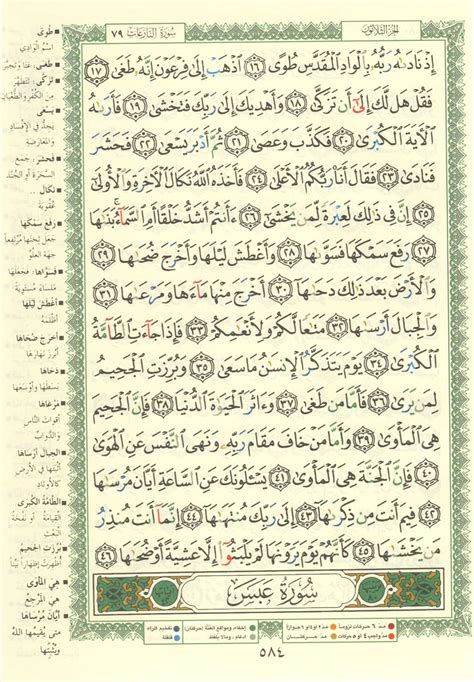 الجزء الثلاثون
سورة النازعات ٧٩
إِذْ نَادَىٰهُ رَبُّهُۥ بِٱلْوَادِ ٱلْمُقَدَّسِ طُوًى ١٦ ٱذْهَبْ إِلَىٰ فِرْعَوْنَ إِنَّهُۥ طَغَىٰ ١٧
فَقُلْ هَل لَّكَ إِلَىٰٓ أَن تَزَكَّىٰ ١٨ وَأَهْدِيَكَ إِلَىٰ رَبِّكَ فَتَخْشَىٰ ١٩ فَأَرَىٰهُ
ٱلْـَٔايَةَ ٱلْكُبْرَىٰ ٢٠ فَكَذَّبَ وَعَصَىٰ ٢١ ثُمَّ أَدْبَرَ يَسْعَىٰ ٢٢ فَحَشَرَ
فَنَادَىٰ ٢٣ فَقَالَ أَنَا۠ رَبُّكُمُ ٱلْأَعْلَىٰ ٢٤ فَأَخَذَهُ ٱللَّهُ نَكَالَ ٱلْـَٔاخِرَةِ وَٱلْأُولَىٰٓ
٢٥ إِنَّ فِى ذَٰلِكَ لَعِبْرَةً لِّمَن يَخْشَىٰٓ ٢٦ ءَأَنتُمْ أَشَدُّ خَلْقًا أَمِ ٱلسَّمَآءُ ۚ بَنَىٰهَا
٢٧ رَفَعَ سَمْكَهَا فَسَوَّىٰهَا ٢٨ وَأَغْطَشَ لَيْلَهَا وَأَخْرَجَ ضُحَىٰهَا ٢٩
وَٱلْأَرْضَ بَعْدَ ذَٰلِكَ دَحَىٰهَآ ٣٠ أَخْرَجَ مِنْهَا مَآءَهَا وَمَرْعَىٰهَا ٣١
وَٱلْجِبَالَ أَرْسَىٰهَا ٣٢ مَتَٰعًا لَّكُمْ وَلِأَنْعَٰمِكُمْ ٣٣ فَإِذَا جَآءَتِ ٱلطَّآمَّةُ
ٱلْكُبْرَىٰ ٣٤ يَوْمَ يَتَذَكَّرُ ٱلْإِنسَٰنُ مَا سَعَىٰ ٣٥ وَبُرِّزَتِ ٱلْجَحِيمُ
لِمَن يَرَىٰ ٣٦ فَأَمَّا مَن طَغَىٰ ٣٧ وَءَاثَرَ ٱلْحَيَوٰةَ ٱلدُّنْيَا ٣٨ فَإِنَّ ٱلْجَحِيمَ
هِىَ ٱلْمَأْوَىٰ ٣٩ وَأَمَّا مَنْ خَافَ مَقَامَ رَبِّهِۦ وَنَهَى ٱلنَّفْسَ عَنِ ٱلْهَوَىٰ
٤٠ فَإِنَّ ٱلْجَنَّةَ هِىَ ٱلْمَأْوَىٰ ٤١ يَسْـَٔلُونَكَ عَنِ ٱلسَّاعَةِ أَيَّانَ مُرْسَىٰهَا
٤٢ فِيمَ أَنتَ مِن ذِكْرَىٰهَآ ٤٣ إِلَىٰ رَبِّكَ مُنتَهَىٰهَآ ٤٤ إِنَّمَآ أَنتَ مُنذِرُ
مَن يَخْشَىٰهَا ٤٥ كَأَنَّهُمْ يَوْمَ يَرَوْنَهَا لَمْ يَلْبَثُوٓا۟ إِلَّا عَشِيَّةً أَوْ ضُحَىٰهَا ٤٦
سُورَةُ عَبَسَ
طُوًى
اسْمُ الْوَادِي
طَغَى: عَتَا وَتَجَبَّرَ
تَزَكَّى: تَتَطَهَّرَ
مِنَ الكُفْرِ وَالطُّغْيَانِ
يَسْعَى
يَجِدُّ فِي الإِفْسَادِ
وَالمُعَارَضَةِ
فَحَشَرَ: جَمَعَ
السَّحَرَةَ أَوِ الجُنْدَ
نَكَالَ ..
عُقُوبَةَ
رَفَعَ سَمْكَهَا
جَعَلَ ثِخَنَهَا مُرْتَفِعاً
جِهَةَ العُلُوِّ
فَسَوَّاهَا: فَجَعَلَهَا
مَلْسَاءَ مُسْتَوِيَةً
أَغْطَشَ لَيْلَهَا
أَظْلَمَهُ
أَخْرَجَ ضُحَاهَا
أَبْرَزَ نَهَارَهَا
دَحَاهَا
بَسَطَهَا وَأَوْسَعَهَا
مَرْعَاهَا
أَقْوَاتَ النَّاسِ
وَالدَّوَابِّ
الجِبَالَ أَرْسَاهَا
أَثْبَتَهَا فِي الأَرْضِ
كَالأَوْتَادِ
الطَّامَّةُ الكُبْرَى
القِيَامَةُ أَوْ نَفْخَةُ
البَعْثِ
بُرِّزَتِ الجَحِيمُ
أُظْهِرَتْ إِظْهَاراً بَيِّناً
هِيَ المَأْوَى
هِيَ المَرْجِعُ
أَيَّانَ مُرْسَاهَا
مَتَى يُقِيمُهَا اللهُ
وَيُثْبِتُهَا
مدّ ٦ حركات لزوماً
مدّ ٢ أو ٤ أو ٦ جوازاً
إخفاء، ومواقع الغنّة (حركتان)
تفخيم الراء
مدّ واجب ٤ أو ٥ حركات
مدّ حركتان
إدغام، وما لا يلفظ
قلقلة
٥٨٤